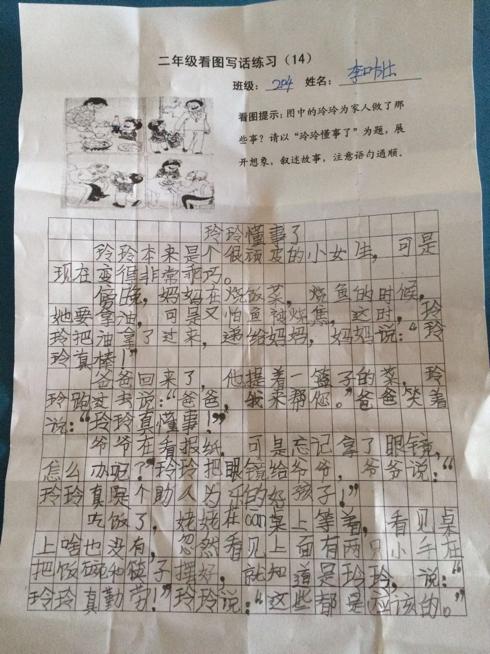 二年级看图写话练习（14）
班级：204 姓名：李
看图提示：图中的玲玲为家人做了那
些事？请以“玲玲懂事了”为题，展
开想象，叙述故事，注意语句通顺。
玲玲懂事了
玲玲本来是个很顽皮的小女生，可是
现在变得非常乖巧。
傍晚，妈妈在烧饭菜，烧鱼的时候，
她要拿油，可是又怕鱼被烧焦，这时，玲
玲把油拿了过来，递给妈妈，妈妈说：“玲
玲真棒！”
爸爸回来了，他提着一篮子的菜，玲
玲跑过去说：“爸爸，我来帮您。”爸爸笑着
说：“玲玲真懂事！”
爷爷在看报纸，可是忘记拿了眼镜，
怎么办呢？”玲玲把眼镜给爷爷，爷爷说：“
玲玲真是个助人为乐的好孩子！”
吃饭了，姥姥在cān桌上等着，看见桌
上啥也没有，忽然看见上面有两只小手在
把饭碗和筷子摆好，就知道是玲玲，说：“
玲玲真勤劳！”玲玲说：“这些都是应该的。”